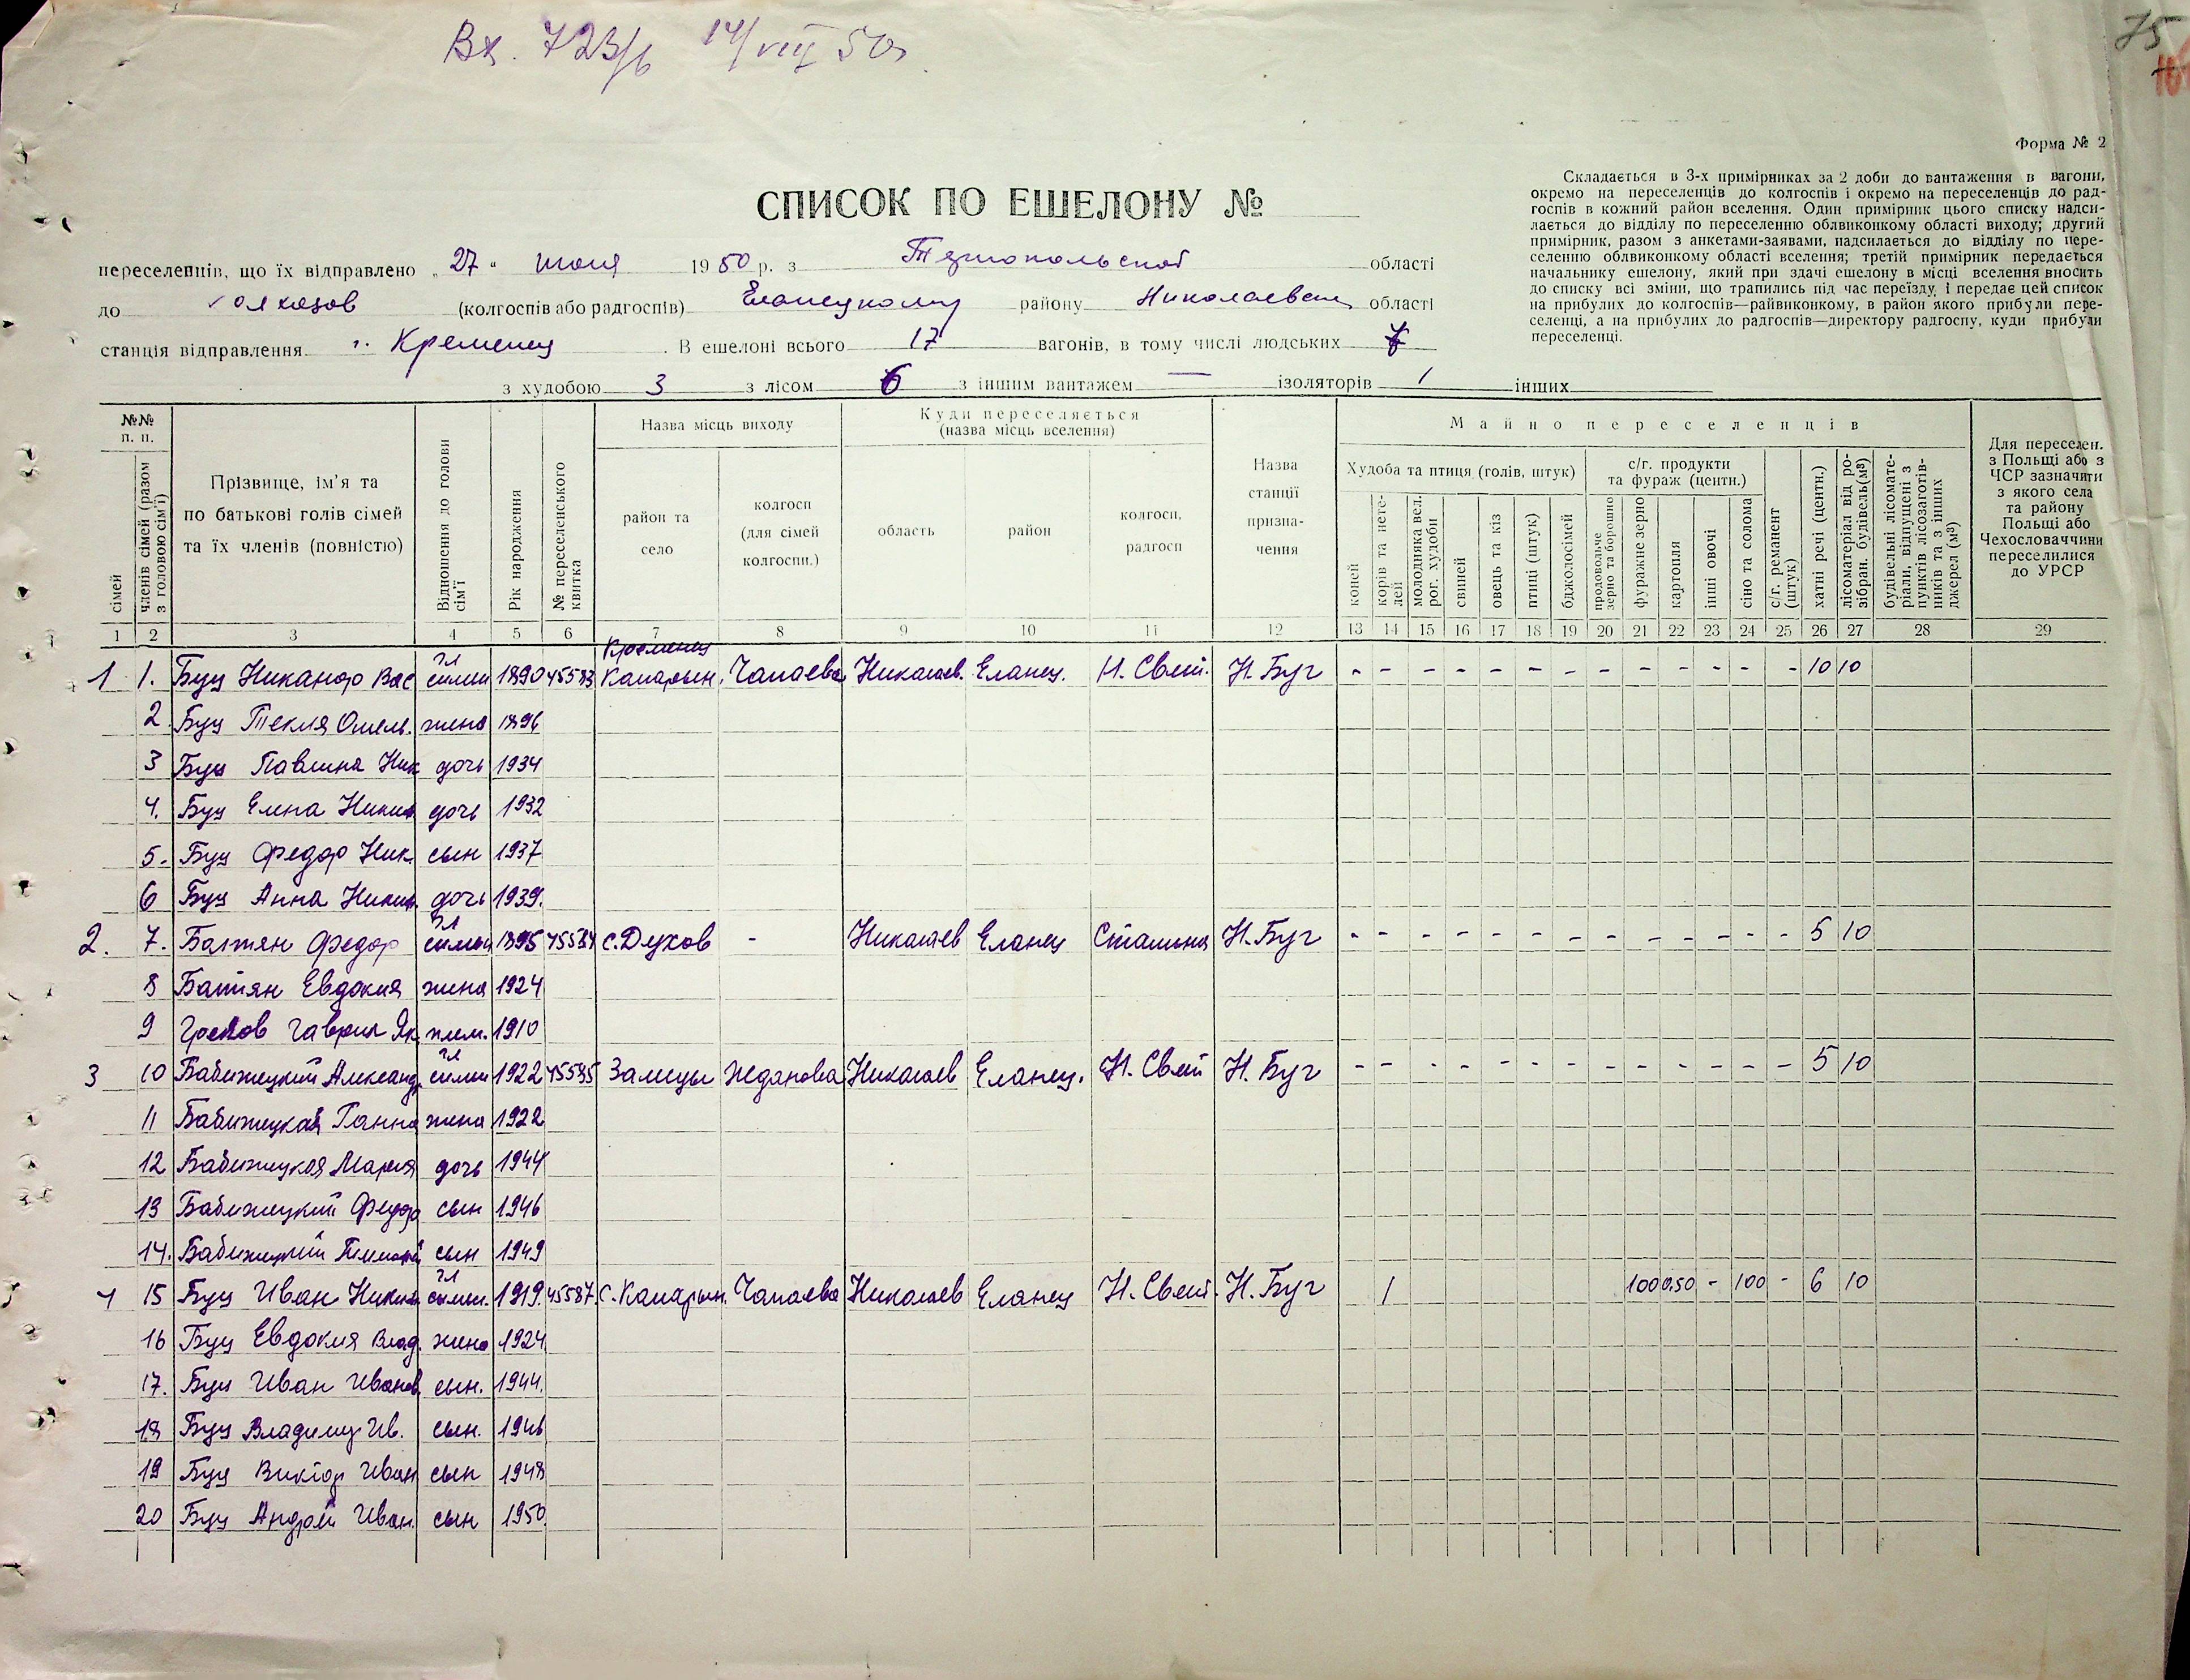 Вх. 723/6 14/VIII 50г.
75
Форма № 2
СПИСОК ПО ЕШЕЛОНУ №
Складається в 3-х примірниках за 2 доби до вантаження в вагони,
окремо на переселенців до колгоспів і окремо на переселенців до рад-
госпів в кожний район вселення. Один примірник цього списку надси-
лається до відділу по переселенню облвиконкому області виходу; другий
примірник, разом з анкетами-заявами, надсилається до відділу по пере-
селенню облвиконкому області вселення; третій примірник передається
начальнику ешелону, який при здачі ешелону в місці вселення вносить
до списку всі зміни, що трапились під час переїзду, і передає цей список
на прибулих до колгоспів—райвиконкому, в район якого прибули пере-
селенці, а на прибулих до радгоспів—директору радгоспу, куди прибули
переселенці.
переселенців, що їх відправлено „27“ июля 1950 р. з Тернопольской області
до колхозов (колгоспів або радгоспів) Еланецкому району Николаевск. області
станція відправлення г. Кременец. В ешелоні всього 17 вагонів, в тому числі людських 7
з худобою 3 з лісом 6 з іншим вантажем — ізоляторів 1 інших
№№ п. п.
сімей
членів сімей (разом з головою сім'ї)
Прізвище, ім'я та
по батькові голів сімей
та їх членів (повністю)
Відношення до голови сім'ї
Рік народження
№ переселенського квитка
Назва місць виходу
район та село
колгосп
(для сімей
колгоспн.)
Куди переселяється
(назва місць вселення)
область
район
колгосп,
радгосп
Назва
станції
призна-
чення
Майно переселенців
Худоба та птиця (голів, штук)
коней
корів та нете-
лей
молодняка вел.
рог. худоби
свиней
овець та кіз
птиці (штук)
бджолосімей
с/г. продукти
та фураж (центн.)
продовольче
зерно та борошно
фуражне зерно
картопля
інші овочі
сіно та солома
с/г. реманент
(штук)
хатні речі (центн.)
лісоматеріал від ро-
зібран. будівель(м³)
будівельні лісомате-
ріали, відпущені з
пунктів лісозаготів-
ників та з інших
джерел (м³)
Для переселен.
з Польщі або з
ЧСР зазначити
з якого села
та району
Польщі або
Чехословаччини
переселилися
до УРСР
1 2 3 4 5 6 7 8 9 10 11 12 13 14 15 16 17 18 19 20 21 22 23 24 25 26 27 28 29
Кременец
1 1. Буц Никанор Вас гл семьи 1890 45583 Чапаева Николаев. Еланец. Н. Свет. Н. Буг - - - - - - - - - - - - 10 10
2. Буц Текля Омель. жена 1896
3 Буц Павлина Ник дочь 1934
4. Буц Елена Никан дочь 1932
5. Буц Федор Ник. сын 1937
6 Буц Анна Никан. дочь 1939.
2. 7. Батян Федор гл семьи 1895 45584 с. Духов - Николаев Еланец Сталина Н. Буг - - - - - - - - - - - - - 5 10
8 Батян Евдокия жена 1924
9 Гаврил Як. 1910
3 10 Бабижецкий Александ. гл семьи 1922 45585 Жданова Николаев Еланец. Н. Свет Н. Буг - - - - - - - - - - - - - 5 10
11 Бабижецкая Ганна жена 1922
12 Бабижецкая Мария дочь 1944
13 Бабижецкий Федор сын 1946
14. Бабижецкий сын 1949
4 15 Буц Иван Никан. гл семьи. 1919. 45587. Чапаева Николаев Еланец Н. Свет. Н. Буг 1 100 0,50 - 100 - 6 10
16 Буц Евдокия Влад. жена 1924.
17. Буц Иван Иванов. сын. 1944.
18 Буц Владимир Ив. сын. 1946
19 Буц Виктор Иван сын 1948
20 Буц Андрей Иван. сын 1950.